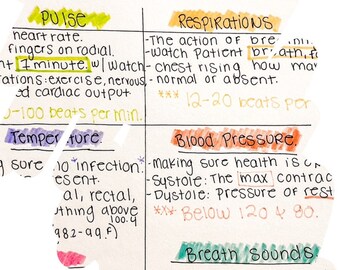 Pulse
heart rate.
fingers on radial.
1 minute w/ watch
rations: exercise, nervous,
ed cardiac output
0-100 beats per min.
Respirations
-The action of brin
-watch patient breath,
-chest rising how ma
-normal or absent.
*** 12-20 beats per
Temperature
g sure no "infection".
esent.
al, rectal,
thing above
100.4
(98.2-99.F)
Blood Pressure.
-making sure health is
-Systole: The max contrac
-Dystole: Pressure of rest
*** Below 120 & 80.
Breath sounds